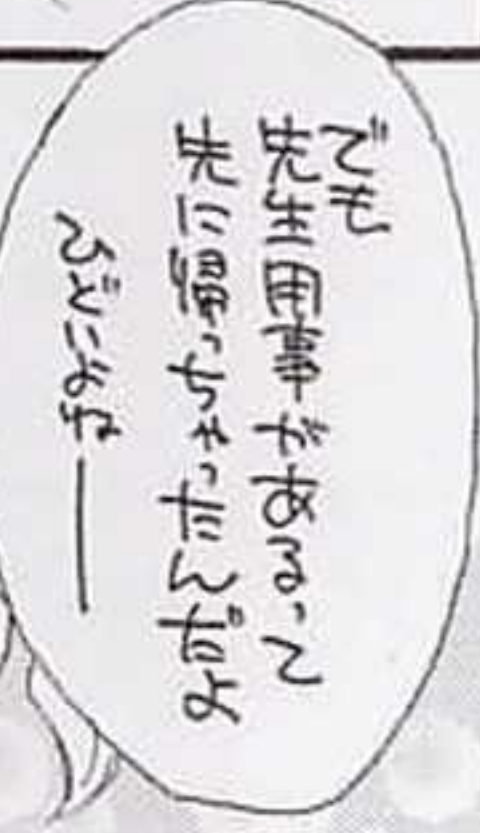 でも
先生用事があるって
先に帰っちゃったんだよ
ひどいよねー